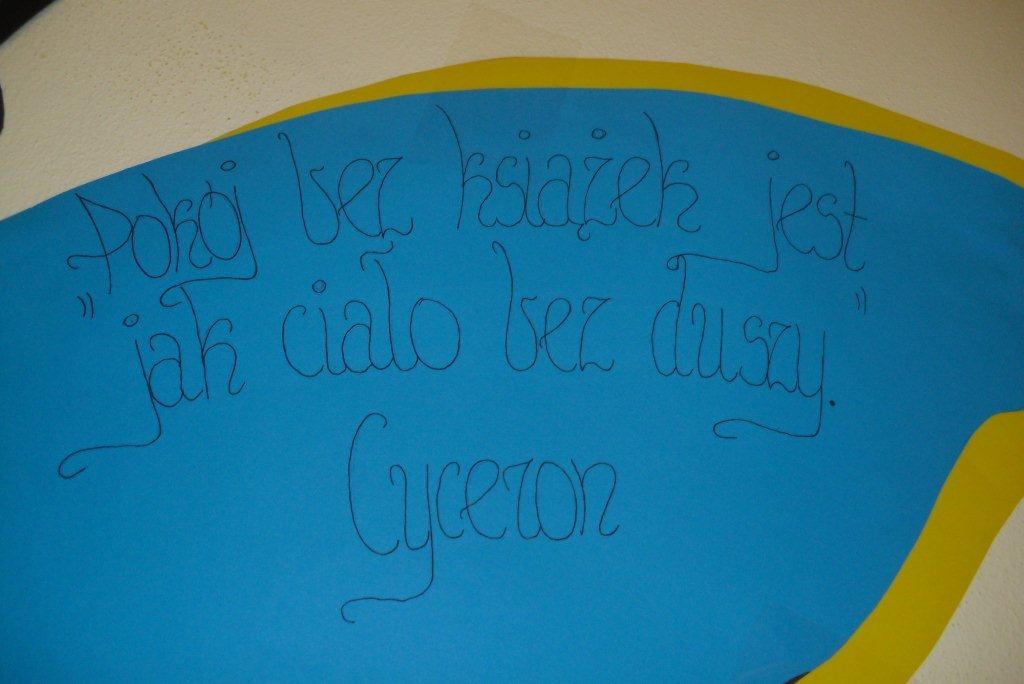 Pokój bez książek jest
"jak ciało bez duszy."
Cyceron